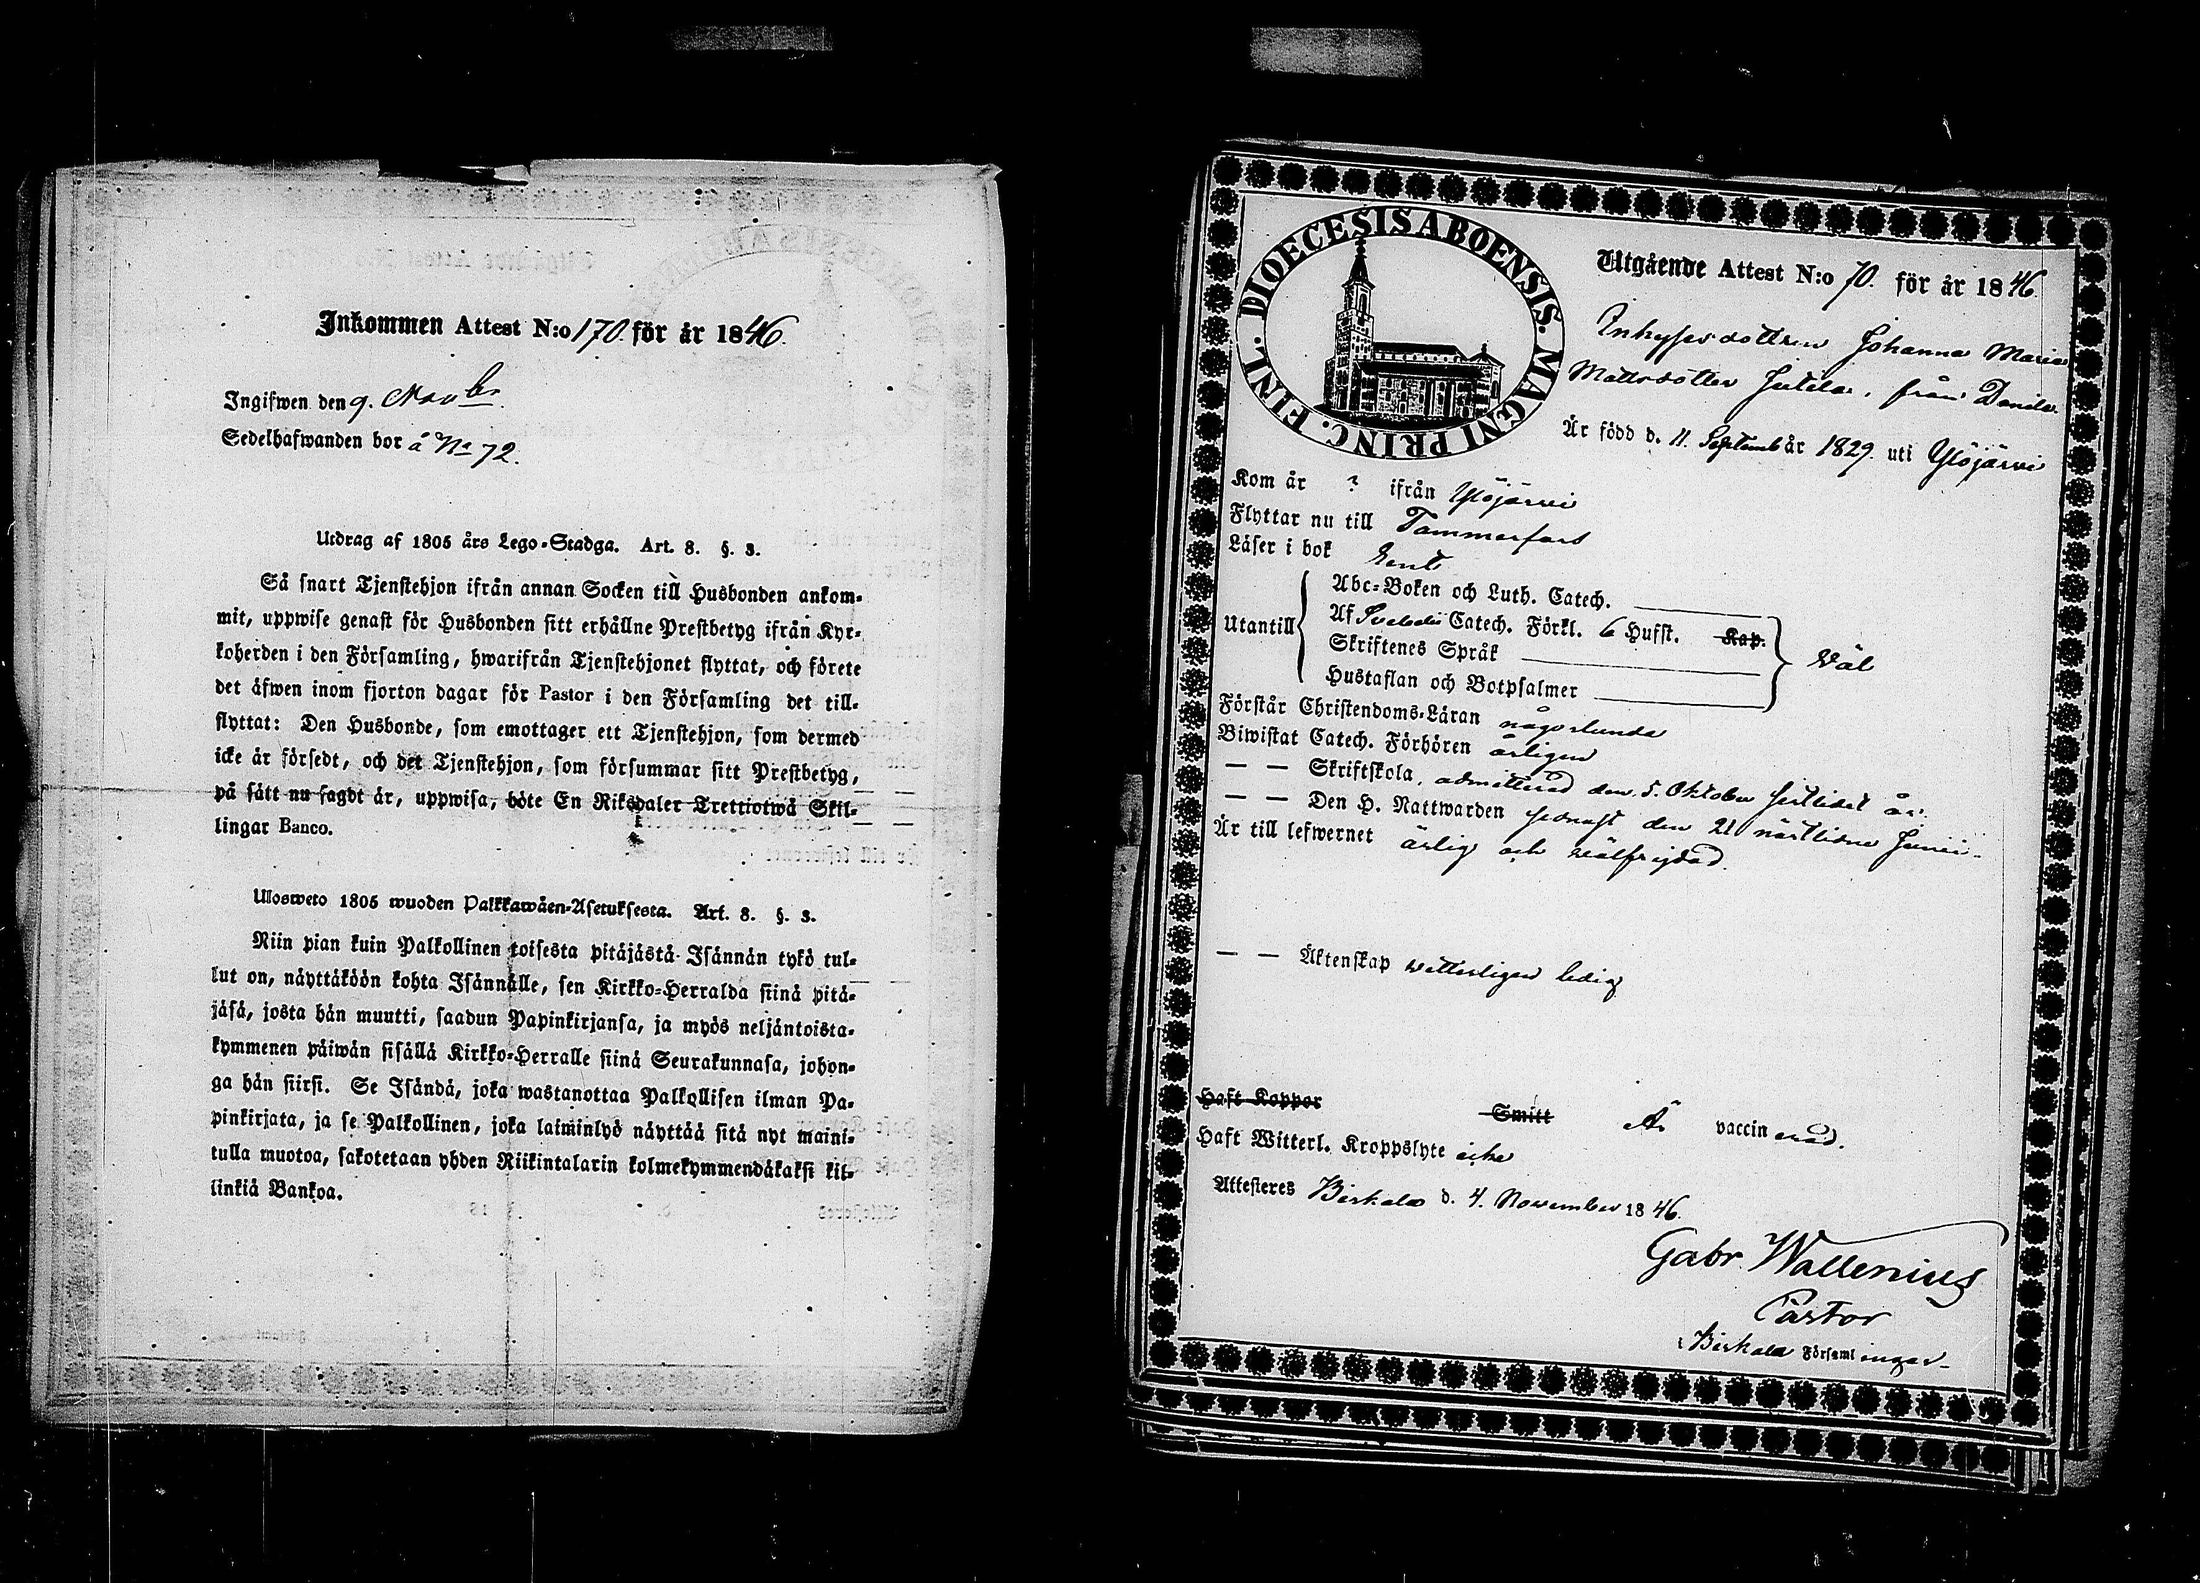 Inkommen Attest N:o 170. för år 1846.
Ingifwen den 9. Novbr
Sedelhafwanden bor å No 72.
Utdrag af 1805 års Lego-Stadga. Art. 8. §. 3.
Så snart Tjenstehjon ifrån annan Socken till Husbonden ankom-
mit, uppwise genast för Husbonden sitt erhållne Prestbetyg ifrån Kyr-
koherden i den Församling, hwarifrån Tjenstehjonet flyttat, och förete
det äfwen inom fjorton dagar för Pastor i den Församling det till-
flyttat: Den Husbonde, som emottager ett Tjenstehjon, som dermed
icke är försedt, och det Tjenstehjon, som försummar sitt Prestbetyg,
på sätt nu sagdt är, uppwisa, böte En Riksdaler Trettiotwå Skil-
lingar Banco.
Ulosweto 1805 wuoden Palkkawäen-Asetuksesta. Art. 8. §. 3.
Niin pian kuin Palkollinen toisesta pitäjästä Isännän tykö tul-
lut on, näyttäköön kohta Isännälle, sen Kirkko-Herralda siinä pitä-
jäsä, josta hän muutti, saadun Papinkirjansa, ja myös neljäntoista-
kymmenen päiwän sisällä Kirkko-Herralle siinä Seurakunnasa, johon-
ga hän siirsi. Se Isändä, joka wastanottaa Palkollisen ilman Pa-
pinkirjata, ja se Palkollinen, joka laiminlyö näyttää sitä nyt maini-
tulla muotoa, sakotetaan yhden Riikintalarin kolmekymmendäkaksi kil-
linkiä Bankoa.
DIOECESIS ABOENSIS. MAGNI PRINC. FINL.
Utgående Attest N:o 70. för år 1846.
Inhysesdottren Johanna Maria
Mattsdotter från
Är född d. 11. Septemb år 1829. uti Ylöjärvi
Kom år ? ifrån Ylöjärvi
Flyttar nu till Tammerfors
Läser i bok
Utantill
Abc-Boken och Luth. Catech.
Af Svebelii Catech. Förkl. 6 Hufst. Kap.
Skriftenes Språk
Hustaflan och Botpsalmer
väl
Förstår Christendoms-Läran någorlunda
Biwistat Catech. Förhören årligen
— — Skriftskola, admitterad den 5. Oktober sistlidet år.
— — Den H. Nattwarden sednast den 21 nästlidne Junii.
Är till lefwernet ärlig och välfrejdad.
— — Äktenskap witterligen ledig
Haft Koppor Smitt Är vaccinerad.
Haft Witterl. Kroppslyte icke
Attesteres Birkala d. 4. November 1846.
Gabr. Wallenius
Pastor
i Birkala Församlingar